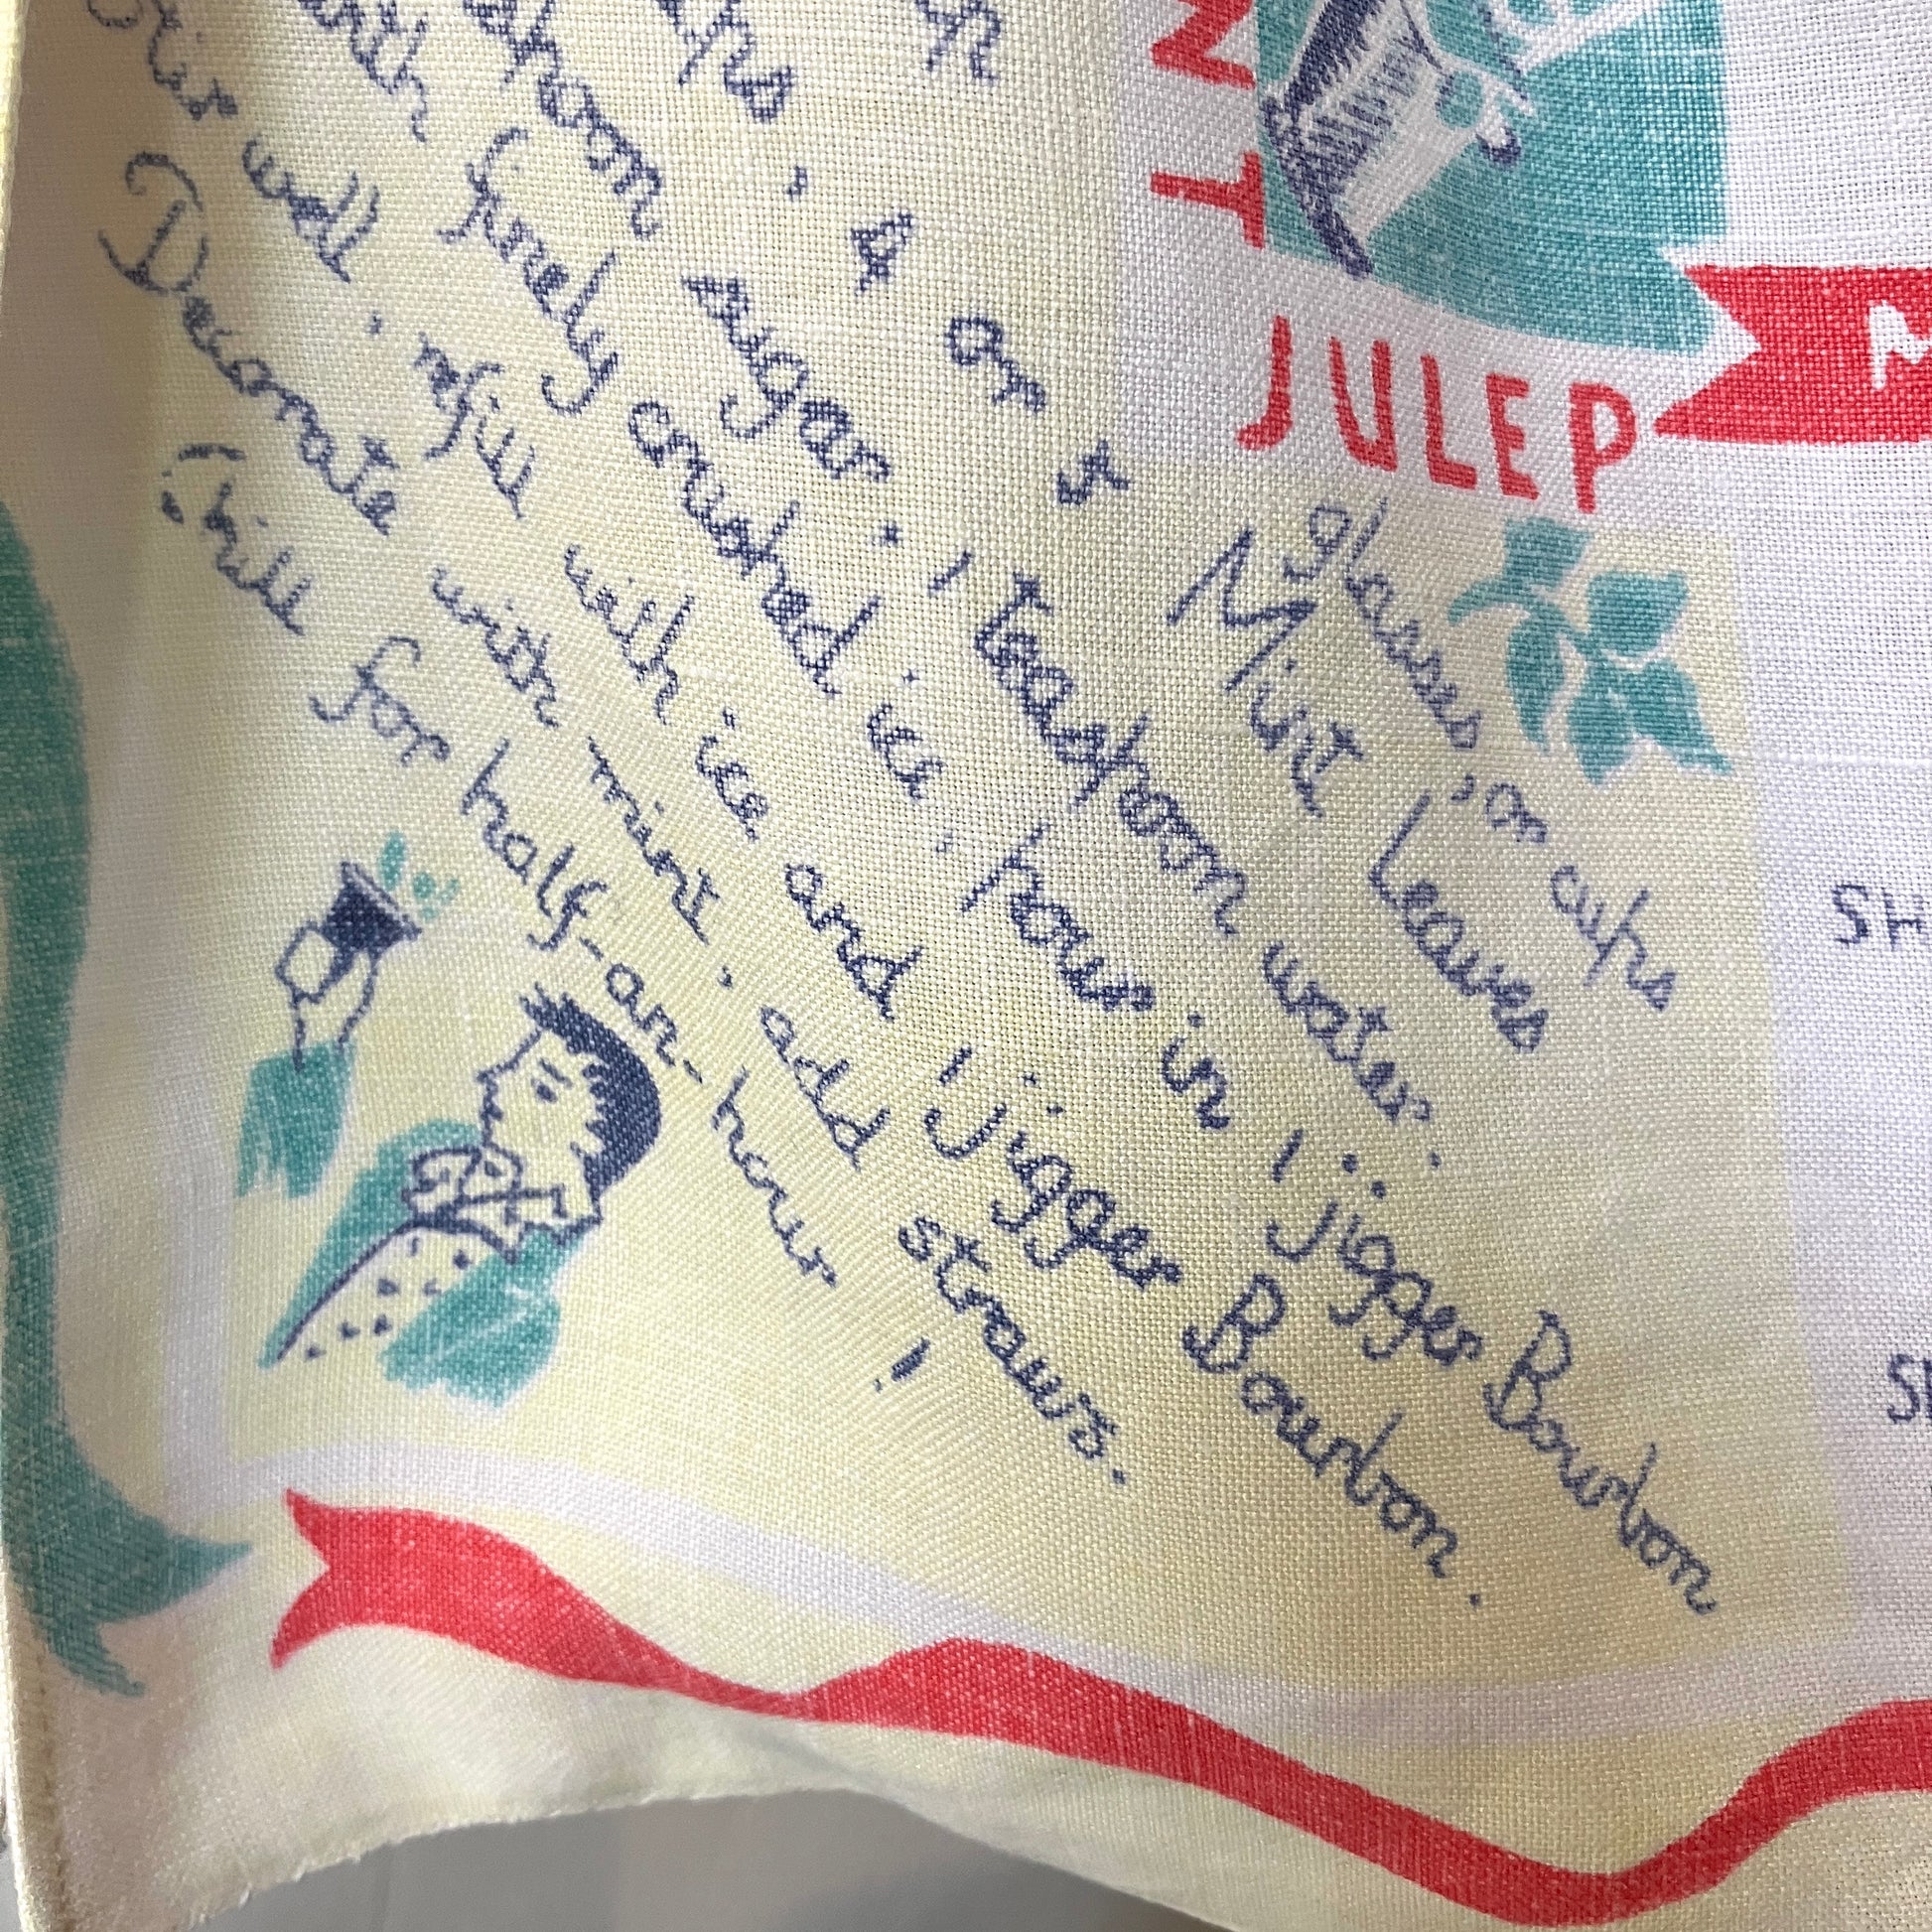 NT
JULEP
glasses, or cups
4 or 5 Mint Leaves
spoon sugar, 1 teaspoon water.
with finely crushed ice, pour in 1 jigger Bourbon
Stir well, refill with ice and 1 jigger Bourbon.
Decorate with mint, add straws.
Chill for half-an-hour!
M
SH
SH